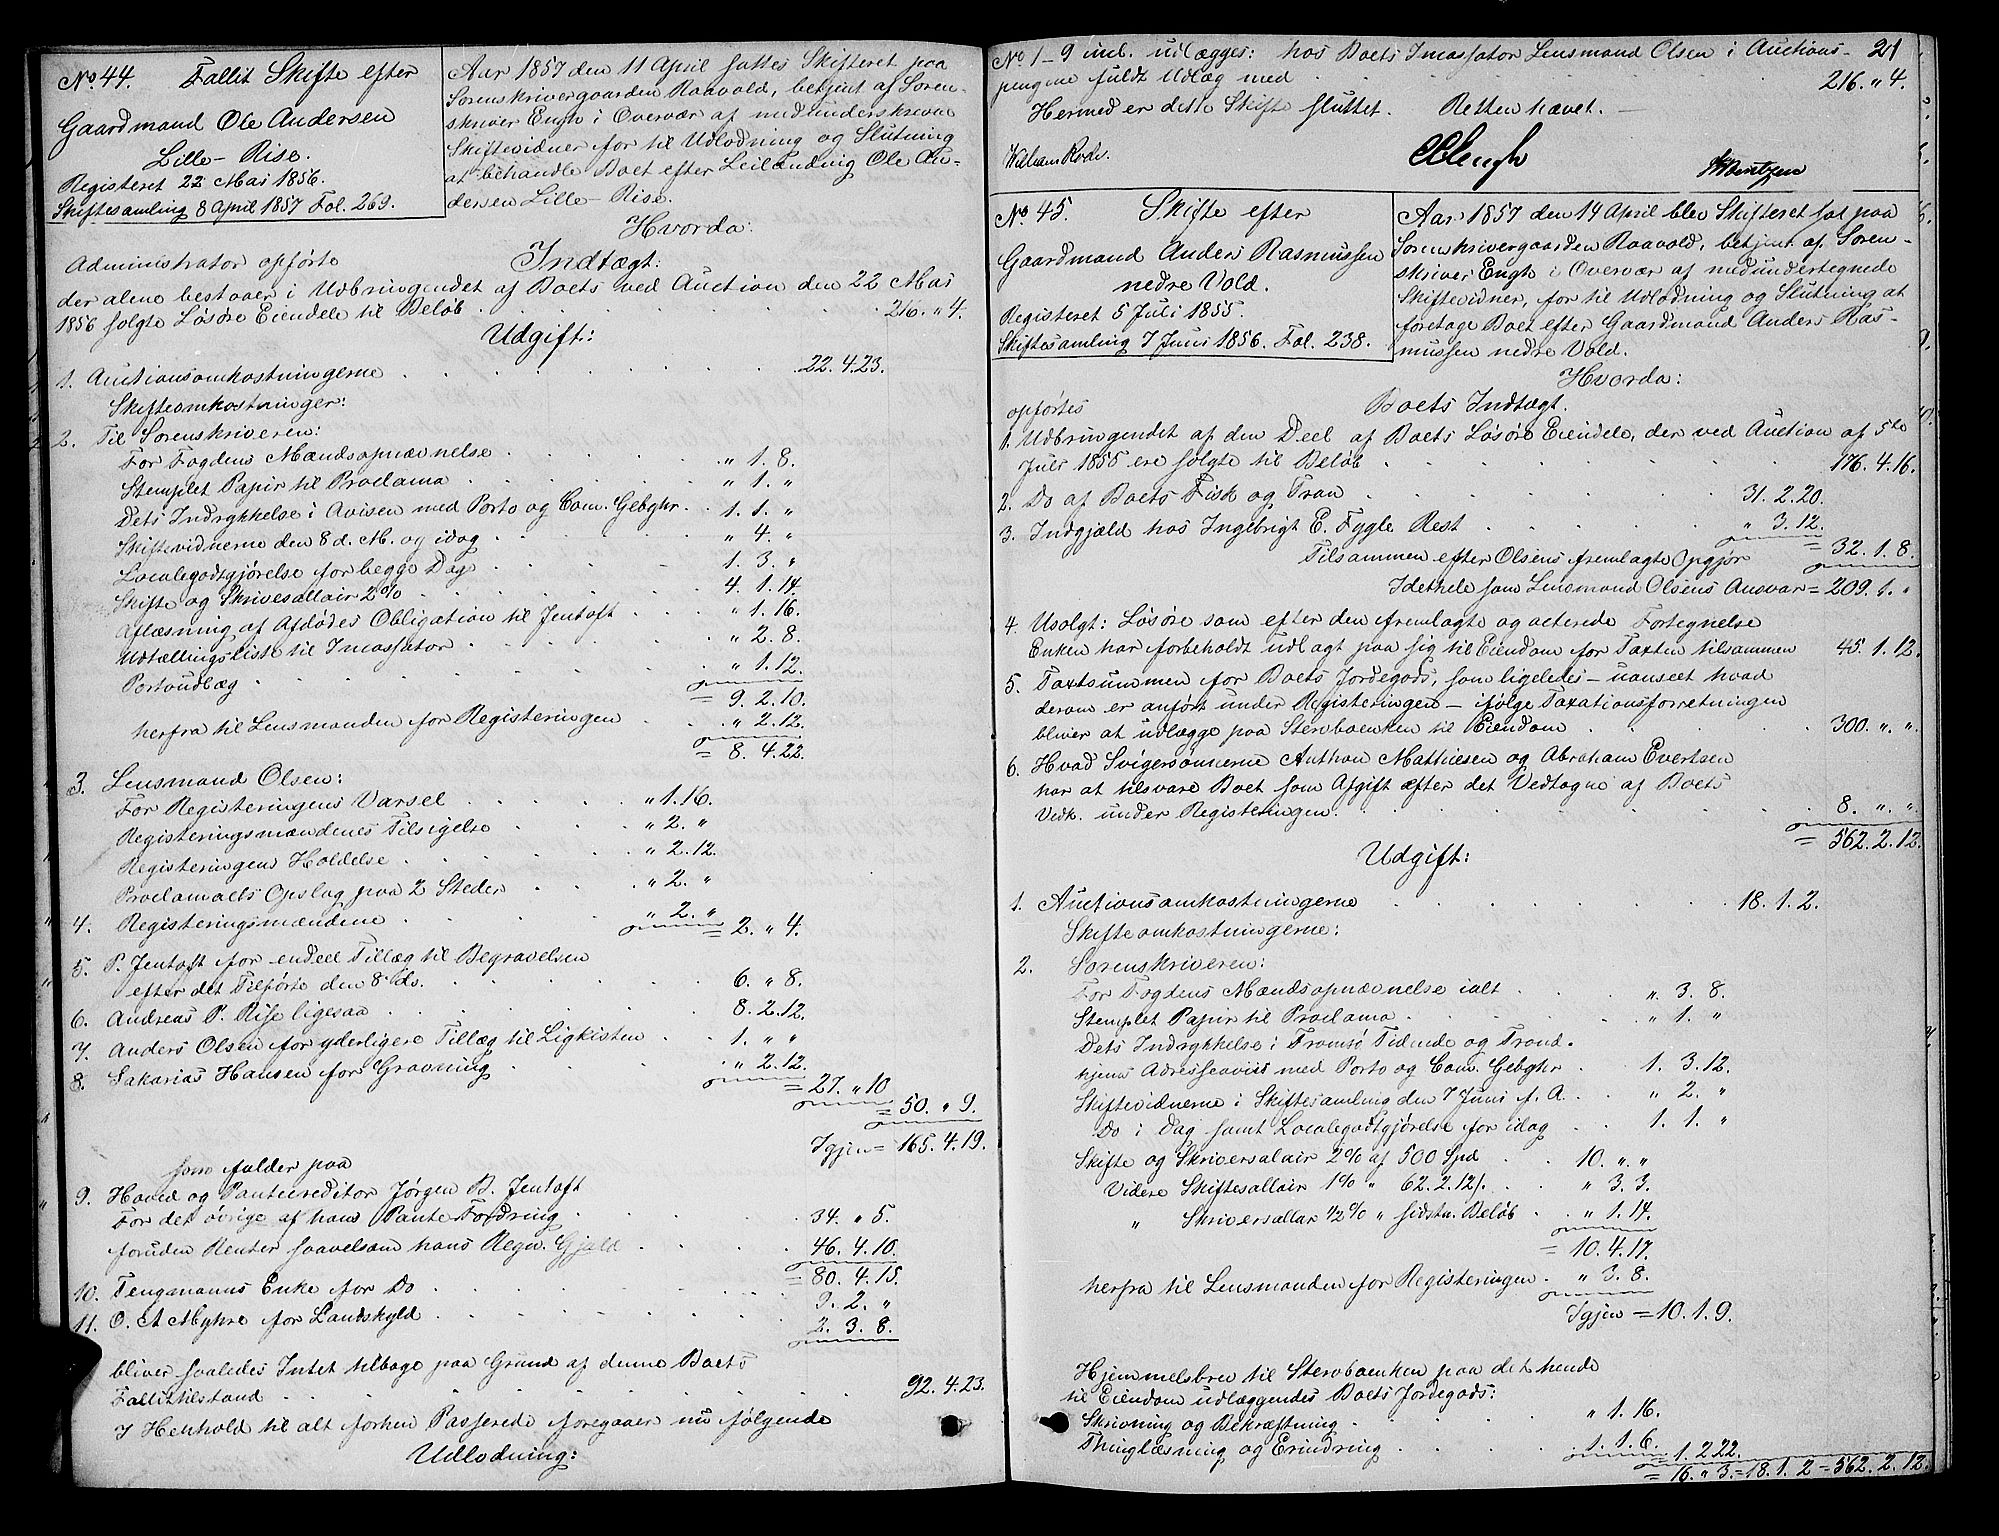 No 44. Fallit Skifte efter
Gaardmand Ole Andersen
Lille-Rise.
Registeret 22 Mai 1856.
Skiftesamling 8 April 1857 Fol. 269.
Aar 1857 den 11 April sattes Skifteret paa
Sorenskrivergaarden Raavold, betjent af Soren-
skriver Engh i Overvær af medunderskrevne
Skiftevidner for til Udlodning og Slutning
at behandle Boet efter Leilænding Ole An-
dersen Lille-Rise.
Hvorda:
Administrator opførte
Indtægt:
der alene bestaaer i Udbringendet af Boets ved Auction den 22 Mai
1856 solgte Løsøre Eiendele til Beløb . . . 216. " 4.
Udgift:
1. Auctionsomkostningerne . . . 22. 4. 23.
Skifteomkostninger:
2. Til Sorenskriveren:
For Fogdens Mændsopnævnelse . . . " 1. 8.
Stemplet Papir til Proclama . . . " 1. "
Dets Indrykkelse i Avisen med Porto og Com. Gebyhr . . 1. 1. "
Skiftevidnerne den 8 d. M. og idag . . . " 4. "
Localegodtgjørelse for begge Dage . . . 1. 3. "
Skifte og Skriversallair 2% . . . 4. 1. 14.
Aflæsning af Afdødes Obligation til Jentoft . . . " 1. 16.
Udtællingsliste til Incassator . . . " 2. 8.
Portoudlæg . . . " 1. 12.
= 9. 2. 10.
herfra til Lensmanden for Registeringen . . . " 2. 12.
= 8. 4. 22.
3. Lensmand Olsen:
For Registeringens Varsel . . . " 1. 16.
Registeringsmændenes Tilsigelse . . . " 2. "
Registeringens Holdelse . . . " 2. 12.
Proclamaets Opslag paa 2 Steder . . . " 2. "
4. Registeringsmændene . . . " 2. "
= 2. " 4.
5. P. Jentoft for endeel Tillæg til Begravelsen
efter det Tilførte den 8 ds. . . . 6. " 8.
6. Andreas P. Rise ligesaa . . . 8. 2. 12.
7. Anders Olsen for yderligere Tillæg til Ligkisten . . 1. " "
8. Sakarias Hansen for Gravning . . . " 2. 12.
= 27. " 10
= 50. " 9.
Igjen = 165. 4. 19.
som falder paa
9. Hoved og Pantecreditor Jørgen B. Jentoft
For det øvrige af hans Pante Fordring . . . 34. " 5.
foruden Renter saavelsom hans Regn. Gjæld . . . 46. 4. 10.
= 80. 4. 15.
10. Tengmanns Enke for Do . . . 9. 2. "
11. O. A Myhre for Landskyld . . . 2. 3. 8.
92. 4. 23.
bliver saaledes Intet tilbage paa Grund af denne Boets
Fallittilstand . . .
I Henhold til alt forhen Passerede foregaaer nu følgende
Udlodning:
201
No 1-9 incl. udlægges: hos Boets Incassator Lensmand Olsen i Auctions-
pengene fuldt Udlæg med . . . 216. " 4.
Hermed er dette Skifte sluttet. Retten hævet.
Engh
No 45. Skifte efter
Gaardmand Anders Rasmussen
nedre Vold.
Registeret 5 Juli 1855.
Skiftesamling 7 Juni 1856. Fol. 238.
Aar 1857 den 14 April blev Skifteret sat paa
Sorenskrivergaarden Raavold, betjent af Soren-
skriver Engh i Overvær af medundertegnede
Skiftevidner, for til Udlodning og Slutning at
foretage Boet efter Gaardmand Anders Ras-
mussen nedre Vold.
Hvorda:
opførtes
Boets Indtægt.
1. Udbringendet af den Deel af Boets Løsøre Eiendele, der ved Auction af 5te
Juli 1855 ere solgte til Beløb . . . 176. 4. 16.
2. Do af Boets Fisk og Tran . . . 31. 2. 20.
3. Indgjæld hos Ingebrigt E. Fygle Rest . . . " 3. 12.
Tilsammen efter Olsens fremlagte Opgjør = 32. 1. 8.
Idethele som Lensmand Olsens Ansvar = 209. 1. "
4. Usolgt: Løsøre som efter den fremlagte og acterede Fortegnelse
Enken har forbeholdt udlagt paa sig til Eiendom for Taxten tilsammen 45. 1. 12.
5. Taxtsummen for Boets Jordegods, som ligeledes - uanseet hvad
derom er anført under Registeringen - ifølge Taxationsforretningen
bliver at udlægge paa Sterboenken til Eiendom . . . 300. " "
6. Hvad Svigersønnerne Anthon Mathiesen og Abraham Evertsen
har at tilsvare Boet som Afgift efter det Vedtagne af Boets
Vedk. under Registeringen . . . 8. " "
= 562. 2. 12.
Udgift:
1. Auctionsomkostningerne . . . 18. 1. 2.
Skifteomkostningerne:
2. Sorenskriveren:
For Fogdens Mændsopnævnelse ialt . . . " 3. 8.
Stemplet Papir til Proclama . . . " 1. "
Dets Indrykkelse i Tromsø Tidende og Trond-
hjems Adresseavis med Porto og Com. Gebyhr . . 1. 3. 12.
Skiftevidnerne i Skiftesamling den 7 Juni f. A. . . " 2. "
Do i Dag samt Localegodtgjørelse for idag . . 1. 1. "
Skifte og Skriversalair 2% af 500 Spd . . 10. " "
Videre Skiftesallair 1% " 62. 2. 12/. . . " 3. 3.
" Skriversallair 1/2% " sidstn. Beløb . . " 1. 14.
= 10. 4. 17.
herfra til Lensmanden for Registeringen . " 3. 8.
Igjen = 10. 1. 9.
Hjemmelsbrev til Sterboenken paa det hende
til Eiendom udlæggendes Boets Jordegods:
Skrivning og Bekræftning . . . " 1. 16.
Thinglæsning og Erindring . . . 1. 1. 6.
= 1. 2. 22.
= 16. " 3. = 18. 1. 2 = 562. 2. 12.